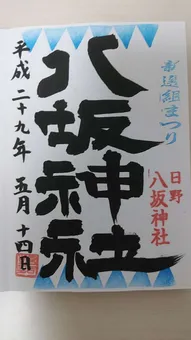 新選組まつり
日野
八坂神社
八坂神社
平成二十九年 五月十四日